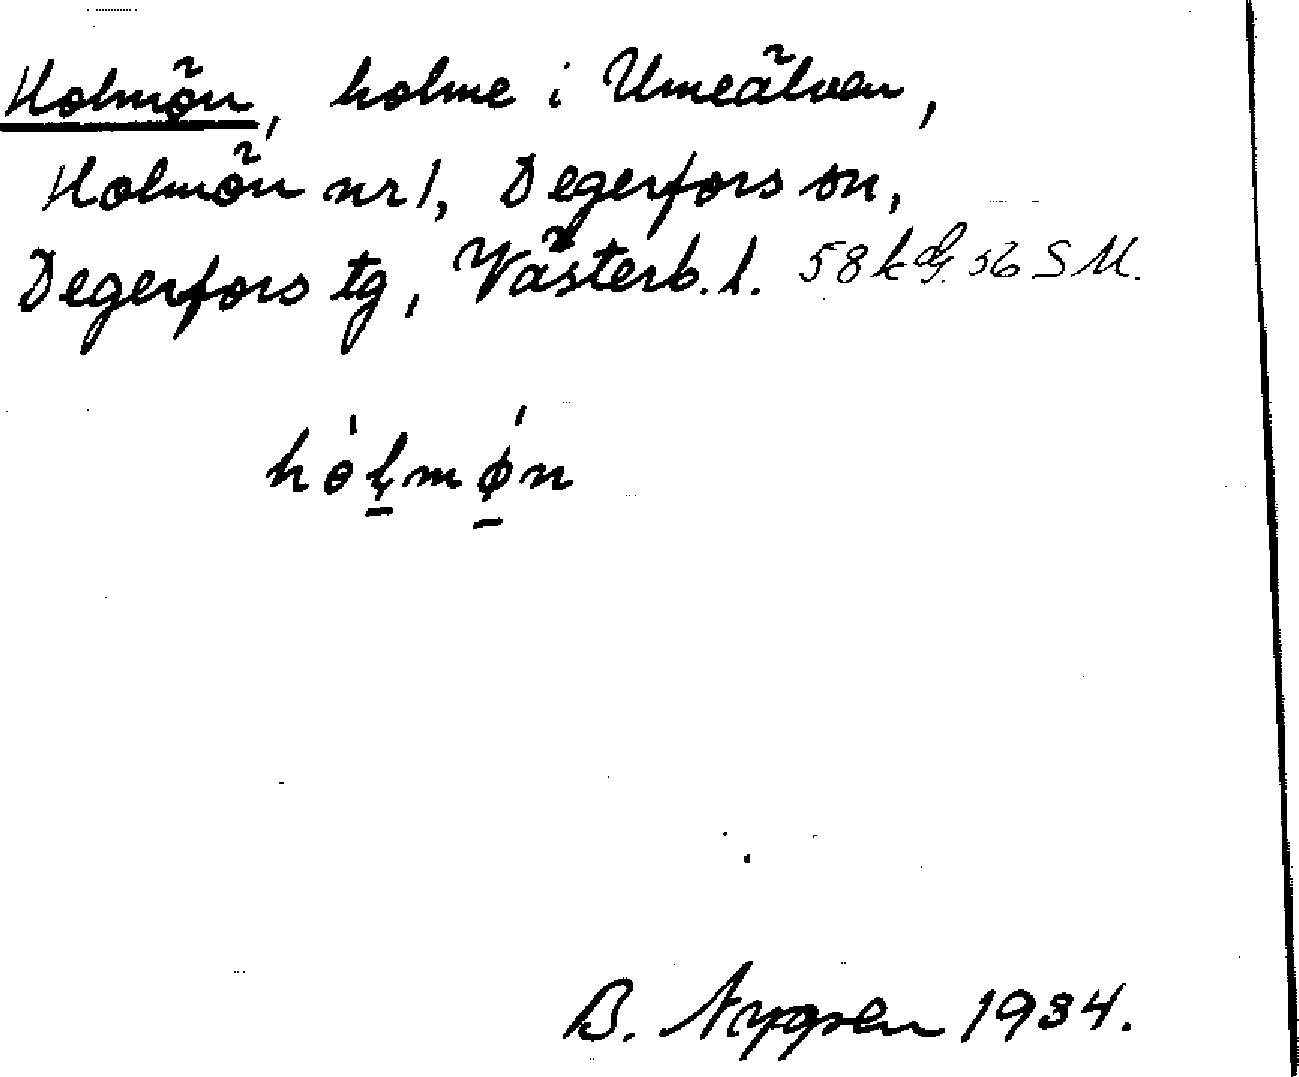 Holmön, holme i Umeälven,
Holmön nr 1, Degerfors sn,
Degerfors tg, Västerb. l. 58 56 S M.
hólmǿn
B. Nygren 1934.